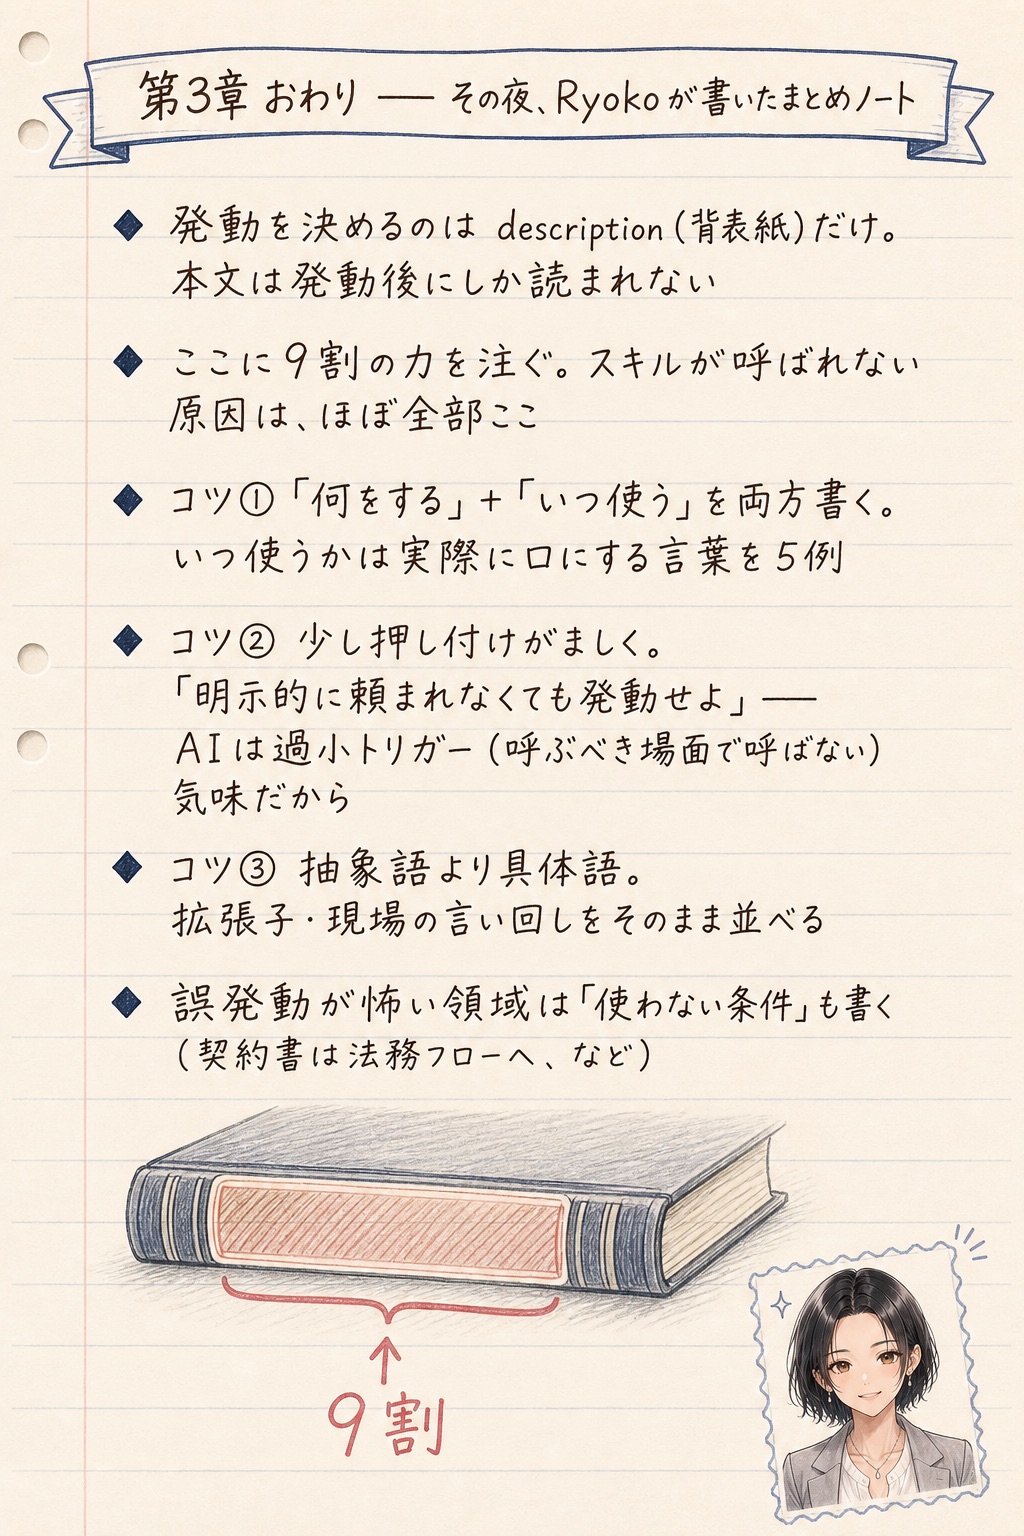 第3章 おわり ── その夜、Ryokoが書いたまとめノート
◆ 発動を決めるのは description(背表紙)だけ。
本文は発動後にしか読まれない
◆ ここに9割の力を注ぐ。スキルが呼ばれない
原因は、ほぼ全部ここ
◆ コツ①「何をする」+「いつ使う」を両方書く。
いつ使うかは実際に口にする言葉を5例
◆ コツ② 少し押し付けがましく。
「明示的に頼まれなくても発動せよ」──
AIは過小トリガー(呼ぶべき場面で呼ばない)
気味だから
◆ コツ③ 抽象語より具体語。
拡張子・現場の言い回しをそのまま並べる
◆ 誤発動が怖い領域は「使わない条件」も書く
(契約書は法務フローへ、など)
9割